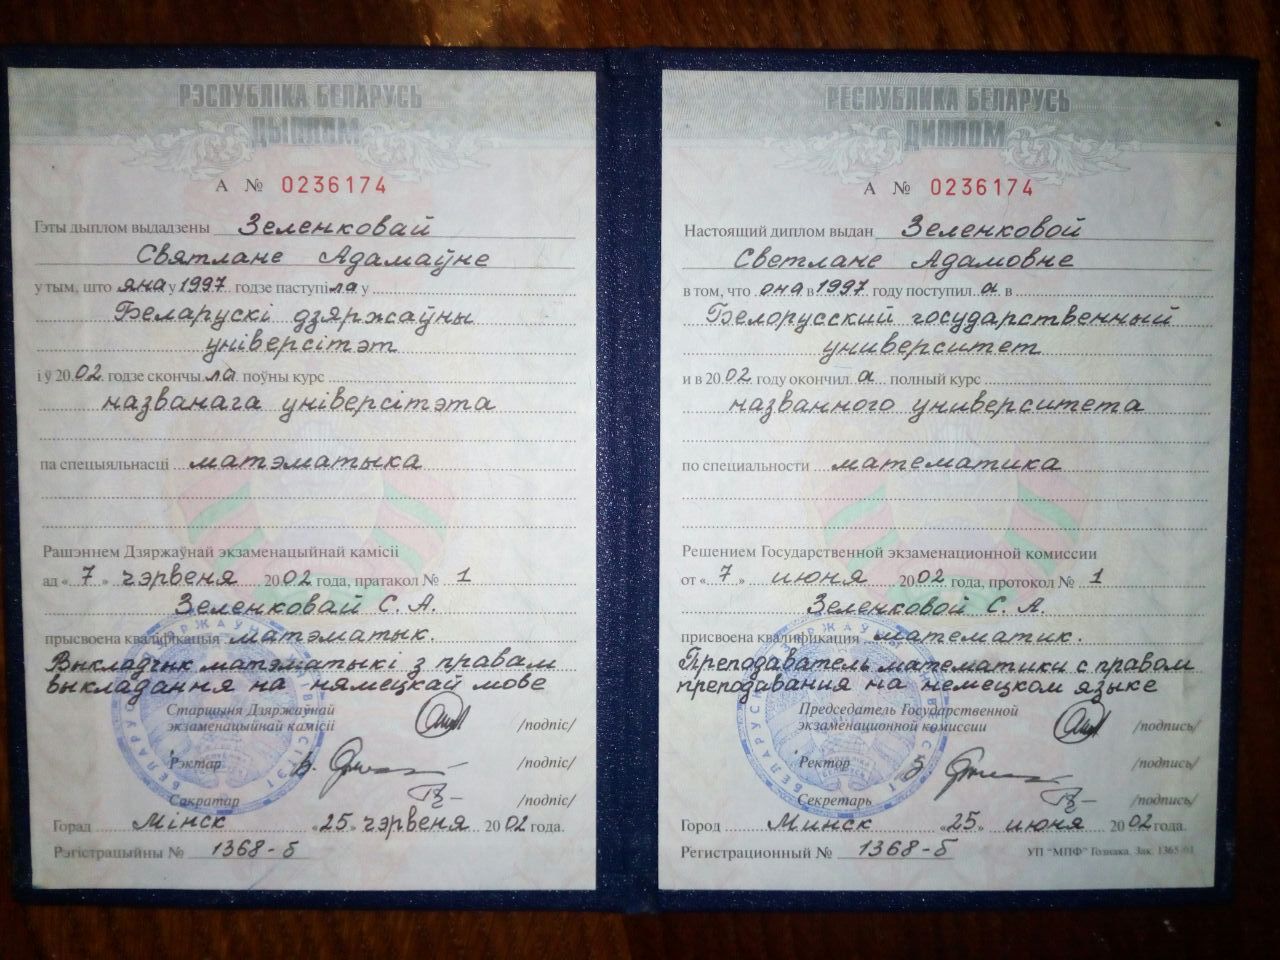 РЭСПУБЛІКА БЕЛАРУСЬ
ДЫПЛОМ
А № 0236174
Гэты дыплом выдадзены Зеленковай
Святлане Адамаўне
у тым, што яна у 1997 годзе паступіла у
Беларускі дзяржаўны
універсітэт
і ў 2002 годзе скончыла поўны курс
названага універсітэта
па спецыяльнасці матэматыка
Рашэннем Дзяржаўнай экзаменацыйнай камісіі
ад «7» чэрвеня 2002 года, пратакол № 1
Зеленковай С. А.
прысвоена кваліфікацыя матэматык.
Выкладчык матэматыкі з правам
выкладання на нямецкай мове
Старшыня Дзяржаўнай
экзаменацыйнай камісіі /подпіс/
Рэктар /подпіс/
Сакратар /подпіс/
Горад Мінск «25» чэрвеня 2002 года.
Рэгістрацыйны № 1368-б
РЕСПУБЛИКА БЕЛАРУСЬ
ДИПЛОМ
А № 0236174
Настоящий диплом выдан Зеленковой
Светлане Адамовне
в том, что она в 1997 году поступила в
Белорусский государственный
университет
и в 2002 году окончила полный курс
названного университета
по специальности математика
Решением Государственной экзаменационной комиссии
от «7» июня 2002 года, протокол № 1
Зеленковой С. А.
присвоена квалификация математик.
Преподаватель математики с правом
преподавания на немецком языке
Председатель Государственной
экзаменационной комиссии /подпись/
Ректор /подпись/
Секретарь /подпись/
Город Минск «25» июня 2002 года.
Регистрационный № 1368-б
УП "МПФ" Гознака. Зак. 1365-01